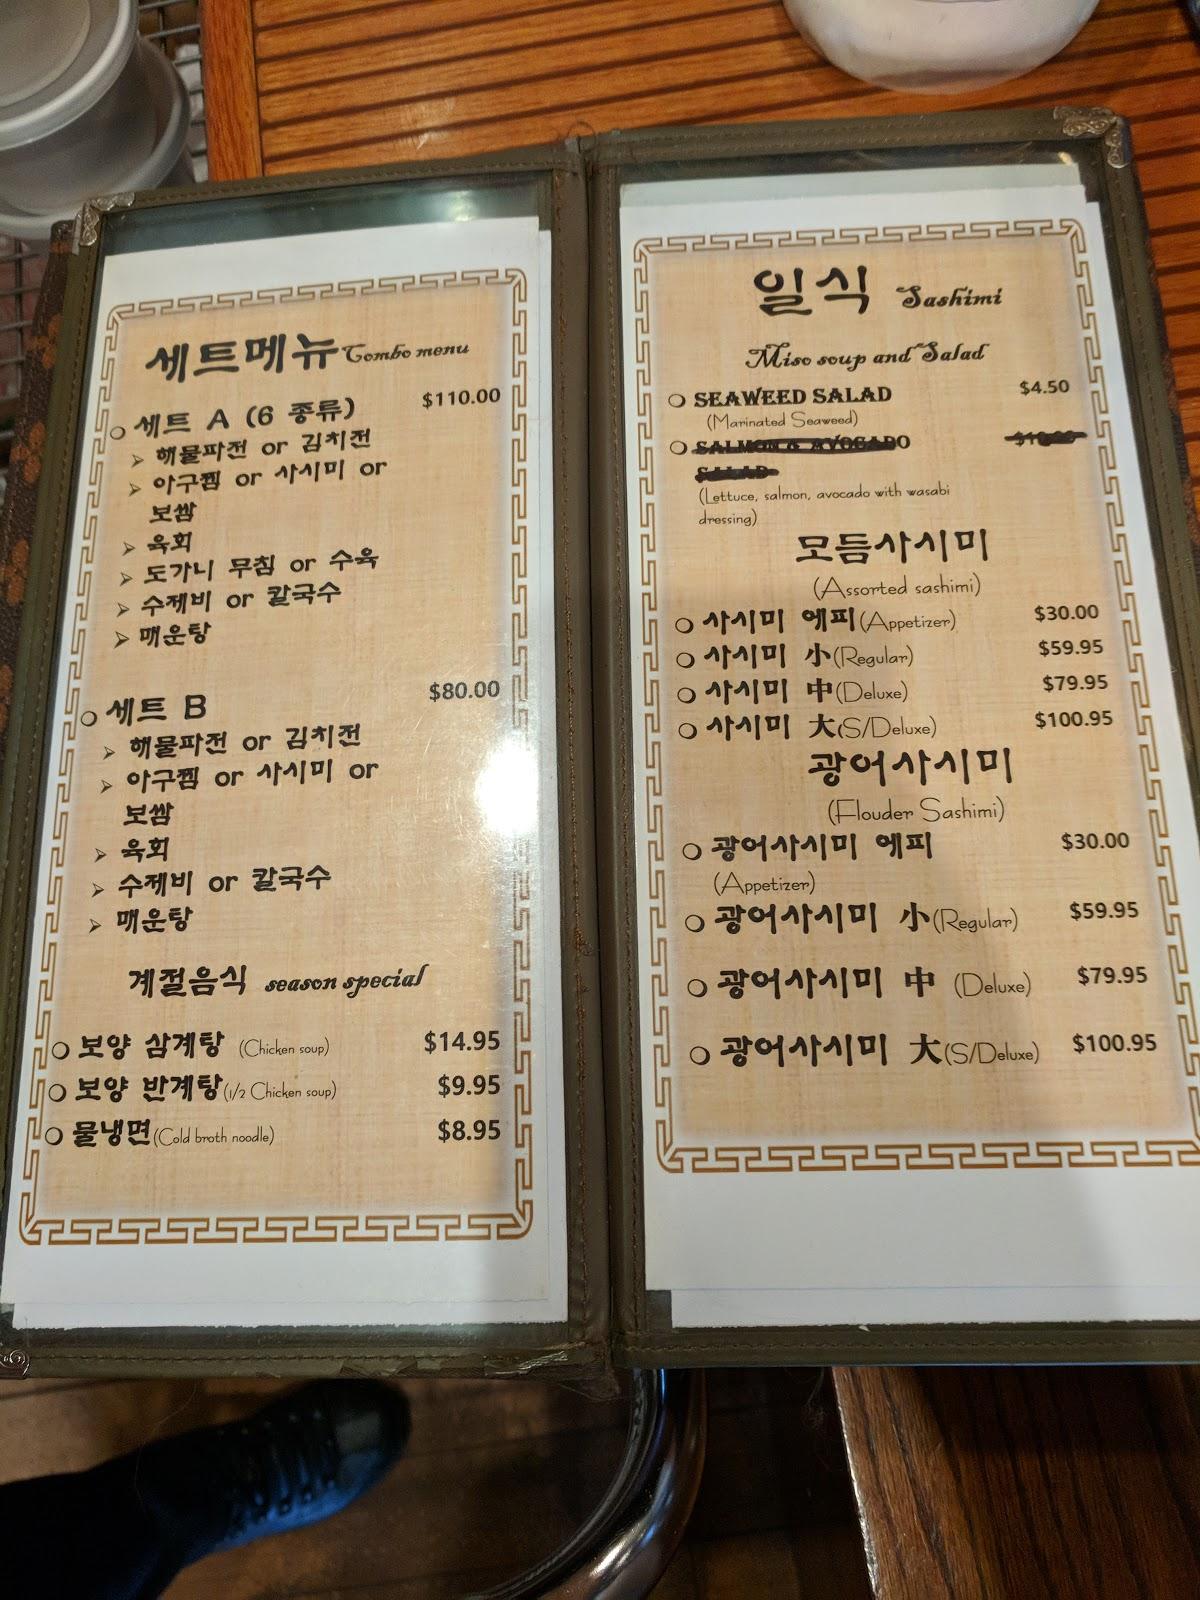 세트메뉴 Combo menu
세트 A (6 종류) $110.00
해물파전 or 김치전
아구찜 or 사시미 or
보쌈
육회
도가니 무침 or 수육
수제비 or 칼국수
매운탕
세트 B $80.00
해물파전 or 김치전
아구찜 or 사시미 or
보쌈
육회
수제비 or 칼국수
매운탕
계절음식 season special
보양 삼계탕 (Chicken soup) $14.95
보양 반계탕(1/2 Chicken soup) $9.95
물냉면(Cold broth noodle) $8.95
일식 Sashimi
Miso soup and Salad
SEAWEED SALAD $4.50
(Marinated Seaweed)
SALMON & AVOCADO
SALAD
(Lettuce, salmon, avocado with wasabi
dressing)
모듬사시미
(Assorted sashimi)
사시미 에피(Appetizer) $30.00
사시미 小(Regular) $59.95
사시미 中(Deluxe) $79.95
사시미 大(S/Deluxe) $100.95
광어사시미
(Flouder Sashimi)
광어사시미 에피 $30.00
(Appetizer)
광어사시미 小(Regular) $59.95
광어사시미 中 (Deluxe) $79.95
광어사시미 大(S/Deluxe) $100.95